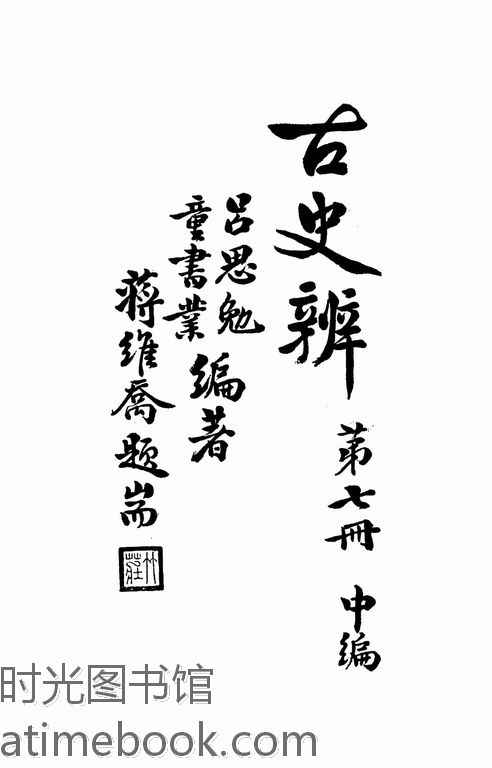 古史辨
第七冊 中編
呂思勉
童書業
編著
蔣維喬題耑
竹莊
时光图书馆
atimebook.com